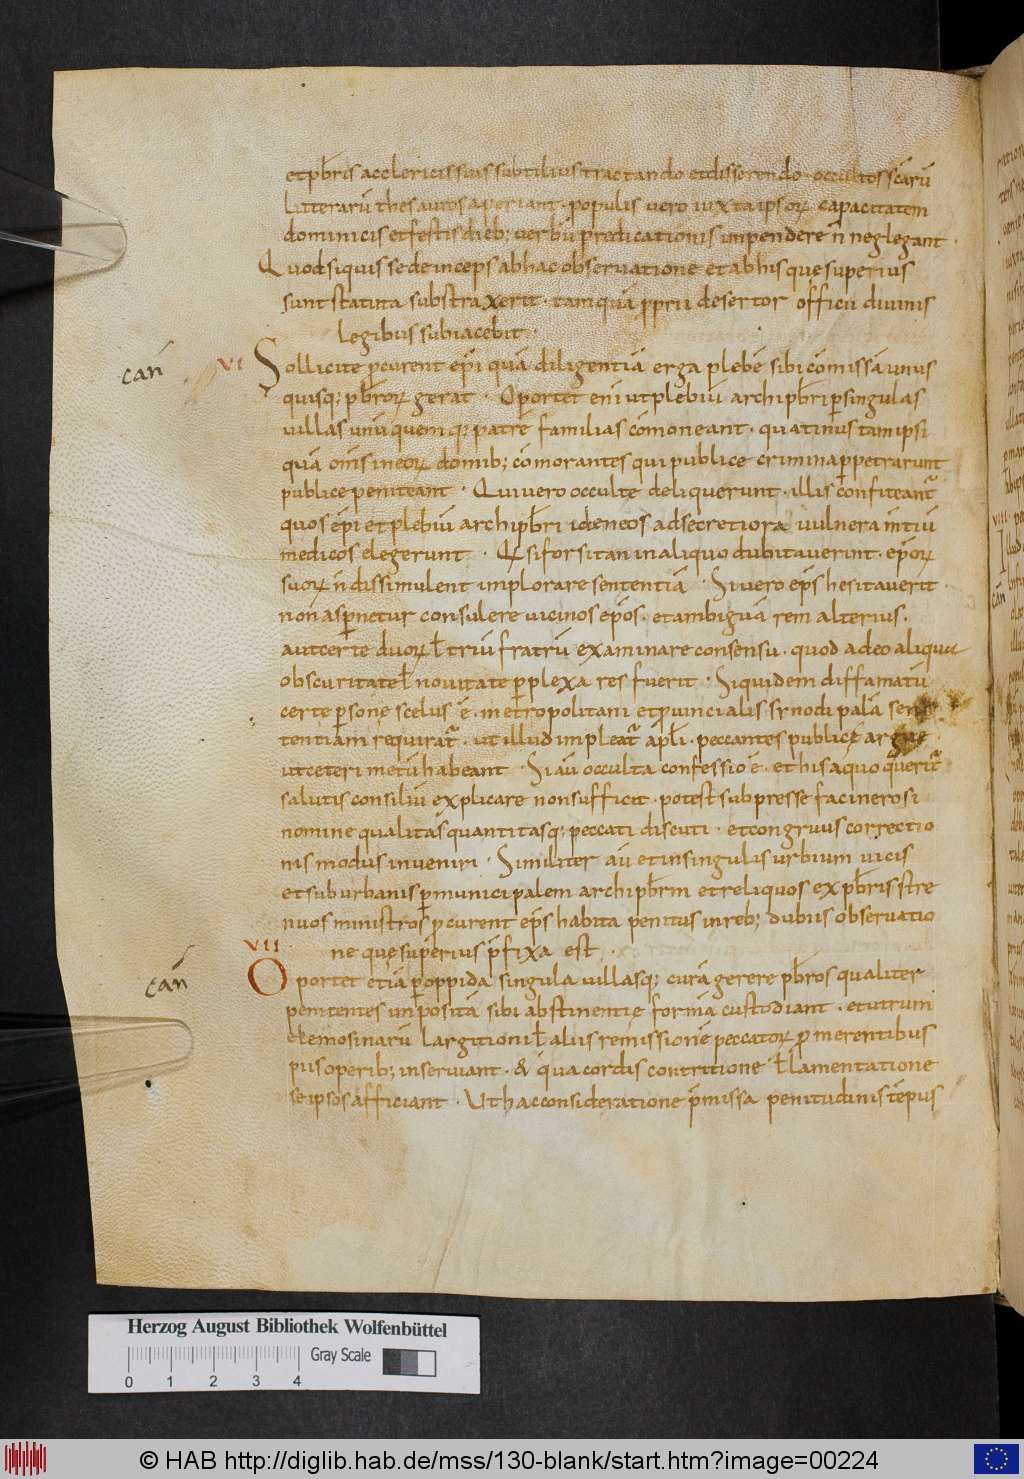 et pb̄ris acclericis suis subtilius tractando et disserendo occultos sc̄arū
litterarū thesauros aperiant · populis vero iuxta ipsoꝝ capacitatem
dominicis et festis dieb; verbū predicationis impendere n̄ neglegant ·
Quod siquis se deinceps ab hac observatione et ab his quę superius
sunt statuta substraxerit · tamquā ꝓprii desertor officii divinis
legibus subiacebit ·
cań
VI
Sollicite ꝓcurent ep̄i quā diligentiā erga plebē sibi cōmissā unus
quisq; pb̄roꝝ gerat · Oportet eni ut plebiū archipb̄ri ꝑ singulas
villas unū quemq; patrē familias cōmoneant · quatinus tam ipsi
quā om̄s in eoꝝ domib; cōmorantes qui publice crimina ꝑpetrarunt
publice peniteant · Qui vero occulte deliquerunt · illis confiteant᷑
quos ep̄i et plebiū archipb̄ri ideneos ad secretiora vulnera mentiū
medicos elegerunt · Qꝫ si forsitan in aliquo dubitaverint · ep̄oꝝ
suoꝝ n̄ dissimulent implorare sententiā · Si vero ep̄s hesitaverit ·
non aspernetur consulere vicinos ep̄os · et ambiguā rem alterius ·
aut certe duoꝝ ł triū fratrū examinare consensu · quod adeo aliqua
obscuritate ł novitate ꝑplexa res fuerit · Siquidem diffamatū
certe ꝑsonę scelus ē · metropolitani et ꝓvincialis synodi palā sen
tentiam requirat᷑ · ut illud impleat᷑ apl̄i · peccantes publicę argue
ut ceteri metū habeant · Si aū occulta confessio ē · et his a quo querit᷑
salutis consiliū explicare non sufficit · potest subpresse facinerosi
nomine qualitas quantitasq; peccati discuti · et congruus correctio
nis modus inveniri · Similiter aū et in singulis urbium vicis
et suburbanis ꝑ municipalem archipb̄rm et reliquos ex pb̄ris stre
nuos ministros ꝓcurent ep̄s habita penitus in reb; dubiis observatio
ne quę superius p̄fixa est ·
cań
VII
Oportet etiā ꝑ oppida singula villasq; curā gerere pb̄ros qualiter
penitentes impositā sibi abstinentię formā custodiant · et utrum
elemosinarū largitioni ł aliis remissionē peccatoꝝ ꝓmerentibus
piis operib; inserviant · & qua cordis contritione ł lamentatione
se ipsos afficiant · Ut hac consideratione p̄missa penitudinis tēpus
Herzog August Bibliothek Wolfenbüttel
Gray Scale
0 1 2 3 4
© HAB http://diglib.hab.de/mss/130-blank/start.htm?image=00224